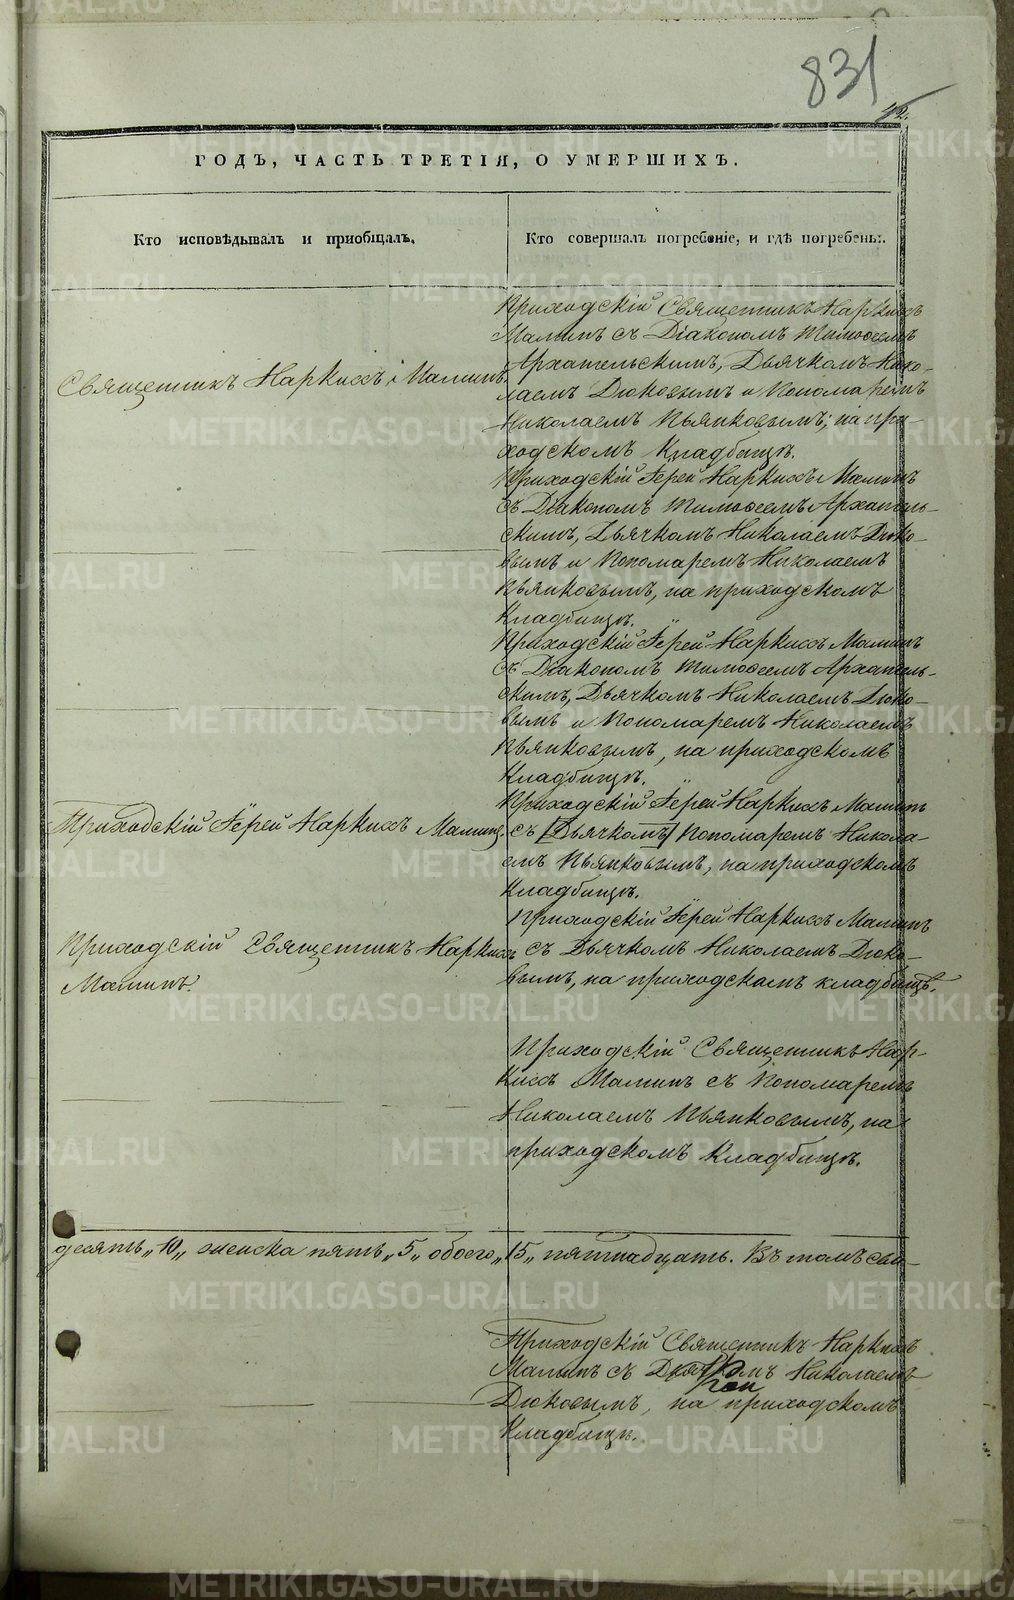 831
42.
ГОДЪ, ЧАСТЬ ТРЕТІЯ, О УМЕРШИХЪ.
Кто исповѣдывалъ и приобщалъ.
Кто совершалъ погребеніе, и гдѣ погребены.
Священникъ Наркиссъ Маминъ.
Приходскій Священникъ Наркиссъ
Маминъ съ Діакономъ Тимоѳеемъ
Архангельскимъ, Дьячкомъ Нико-
лаемъ Дюковымъ и Пономаремъ
Николаемъ Пьянковымъ; на при-
ходскомъ Кладбищѣ.
Приходскій Іерей Наркиссъ Маминъ
съ Діакономъ Тимоѳеемъ Архангель-
скимъ, Дьячкомъ Николаемъ Дюко-
вымъ и Пономаремъ Николаемъ
Пьянковымъ, на приходскомъ
Кладбищѣ.
Приходскій Іерей Наркиссъ Маминъ
съ Діакономъ Тимоѳеемъ Архангель-
скимъ, Дьячкомъ Николаемъ Дюко-
вымъ и Пономаремъ Николаемъ
Пьянковымъ, на приходскомъ
Кладбищѣ.
Приходскій Іерей Наркиссъ Маминъ.
Приходскій Іерей Наркиссъ Маминъ
съ [Дьячкомъ] Пономаремъ Никола-
емъ Пьянковымъ, на приходскомъ
Кладбищѣ.
Приходскій Священникъ Наркиссъ
Маминъ.
Приходскій Іерей Наркиссъ Маминъ
съ Дьячкомъ Николаемъ Дюко-
вымъ, на приходскомъ кладбищѣ.
Приходскій Священникъ Нар-
киссъ Маминъ съ Пономаремъ
Николаемъ Пьянковымъ, на
приходскомъ Кладбищѣ.
десять „10„ женска пять „5„ обоего „15„ пятнадцать. Въ томъ сви-
Приходскій Священникъ Наркиссъ
Маминъ съ Николаемъ
Дюковымъ, на приходскомъ
Кладбищѣ.
METRIKI.GASO-URAL.RU